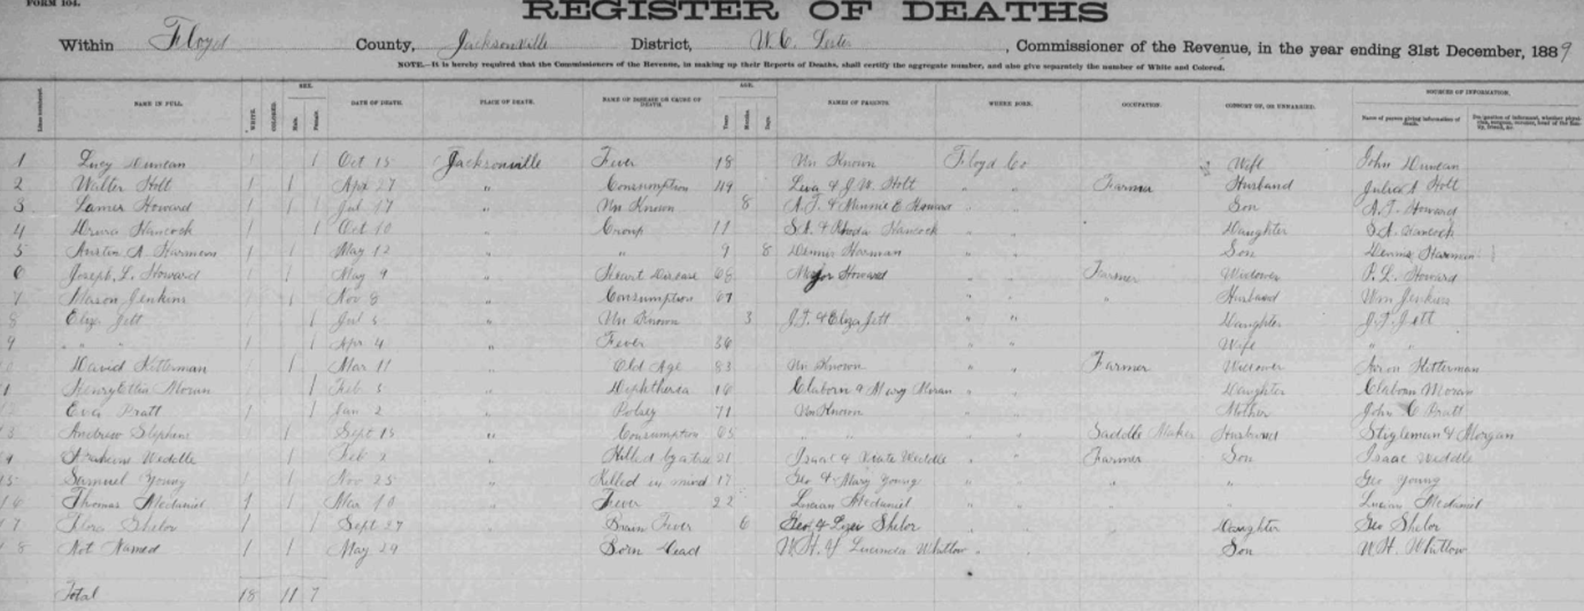 FORM 104.
REGISTER OF DEATHS
Within Floyd County, Jacksonville District, W. C. Lester, Commissioner of the Revenue, in the year ending 31st December, 1889
NOTE.—It is hereby required that the Commissioners of the Revenue, in making up their Reports of Deaths, shall certify the aggregate number, and also give separately the number of White and Colored.
SEX. AGE. SOURCES OF INFORMATION.
NAME IN FULL. WHITE. COLORED. Male. Female. DATE OF DEATH. PLACE OF DEATH. NAME OF DISEASE OR CAUSE OF DEATH. Years Months Days. NAMES OF PARENTS. WHERE BORN. OCCUPATION. CONSORT OF, OR UNMARRIED. Name of person giving information of death.
1 Lucy Duncan 1 1 Oct 15 Jacksonville Fever 18 Un Known Floyd Co Wife John Duncan
2 Walter Holt 1 1 Apr 27 " Consumption 49 & J. W. Holt " " Farmer Husband Julia A Holt
3 Howard 1 1 Jul 17 " Un Known 8 A. T. & Minnie E Howard " " Son A. T. Howard
4 Hancock 1 1 Oct 10 " Croup 11 S. A. & Rhoda Hancock " " Daughter S. A. Hancock
5 Austin A Harmon 1 1 May 12 " " 9 8 Dennis Harman " " Son Dennis Harman
6 Joseph L. Howard 1 1 May 9 " Heart Disease 68 Major Howard " " Farmer Widower P. L. Howard
7 Mason Jenkins 1 1 Nov 8 " Consumption 67 " " " Husband Wm Jenkins
8 Eliza Jett 1 1 Jul 5 " Un Known 3 J. T. & Eliza Jett " " Daughter J. T. Jett
9 " " 1 1 Apr 4 " Fever 36 " " Wife " "
10 David Kitterman 1 1 Mar 11 " Old Age 83 Un Known " " Farmer Widower Aron Kitterman
11 Moran 1 Feb 5 " Diphtheria 16 Claborn & Mary Moran " " Daughter Claborn Moran
12 Eva Pratt 1 1 Jan 2 " Polsey 71 Un Known " " Mother John C Pratt
13 Andrew Stephens 1 Sept 15 " Consumption 65 " " " " Saddle Maker Husband Stigleman & Morgan
14 Weddle 1 Feb 2 " Killed by a tree 21 Isaac & Weddle " " Farmer Son Isaac Weddle
15 Samuel Young 1 Nov 25 " Killed in mind 17 Geo & Mary Young " " " " Geo Young
16 Thomas Mcdaniel 1 1 Mar 10 Fever 22 Mcdaniel " " " " Mcdaniel
17 Flora Shelor 1 1 Sept 27 Brain Fever 6 Geo & Shelor " " Daughter Geo Shelor
18 Not Named 1 1 May 24 Born Dead W. H. & Lucinda Whitlow " " Son W. H. Whitlow
Total 18 11 7